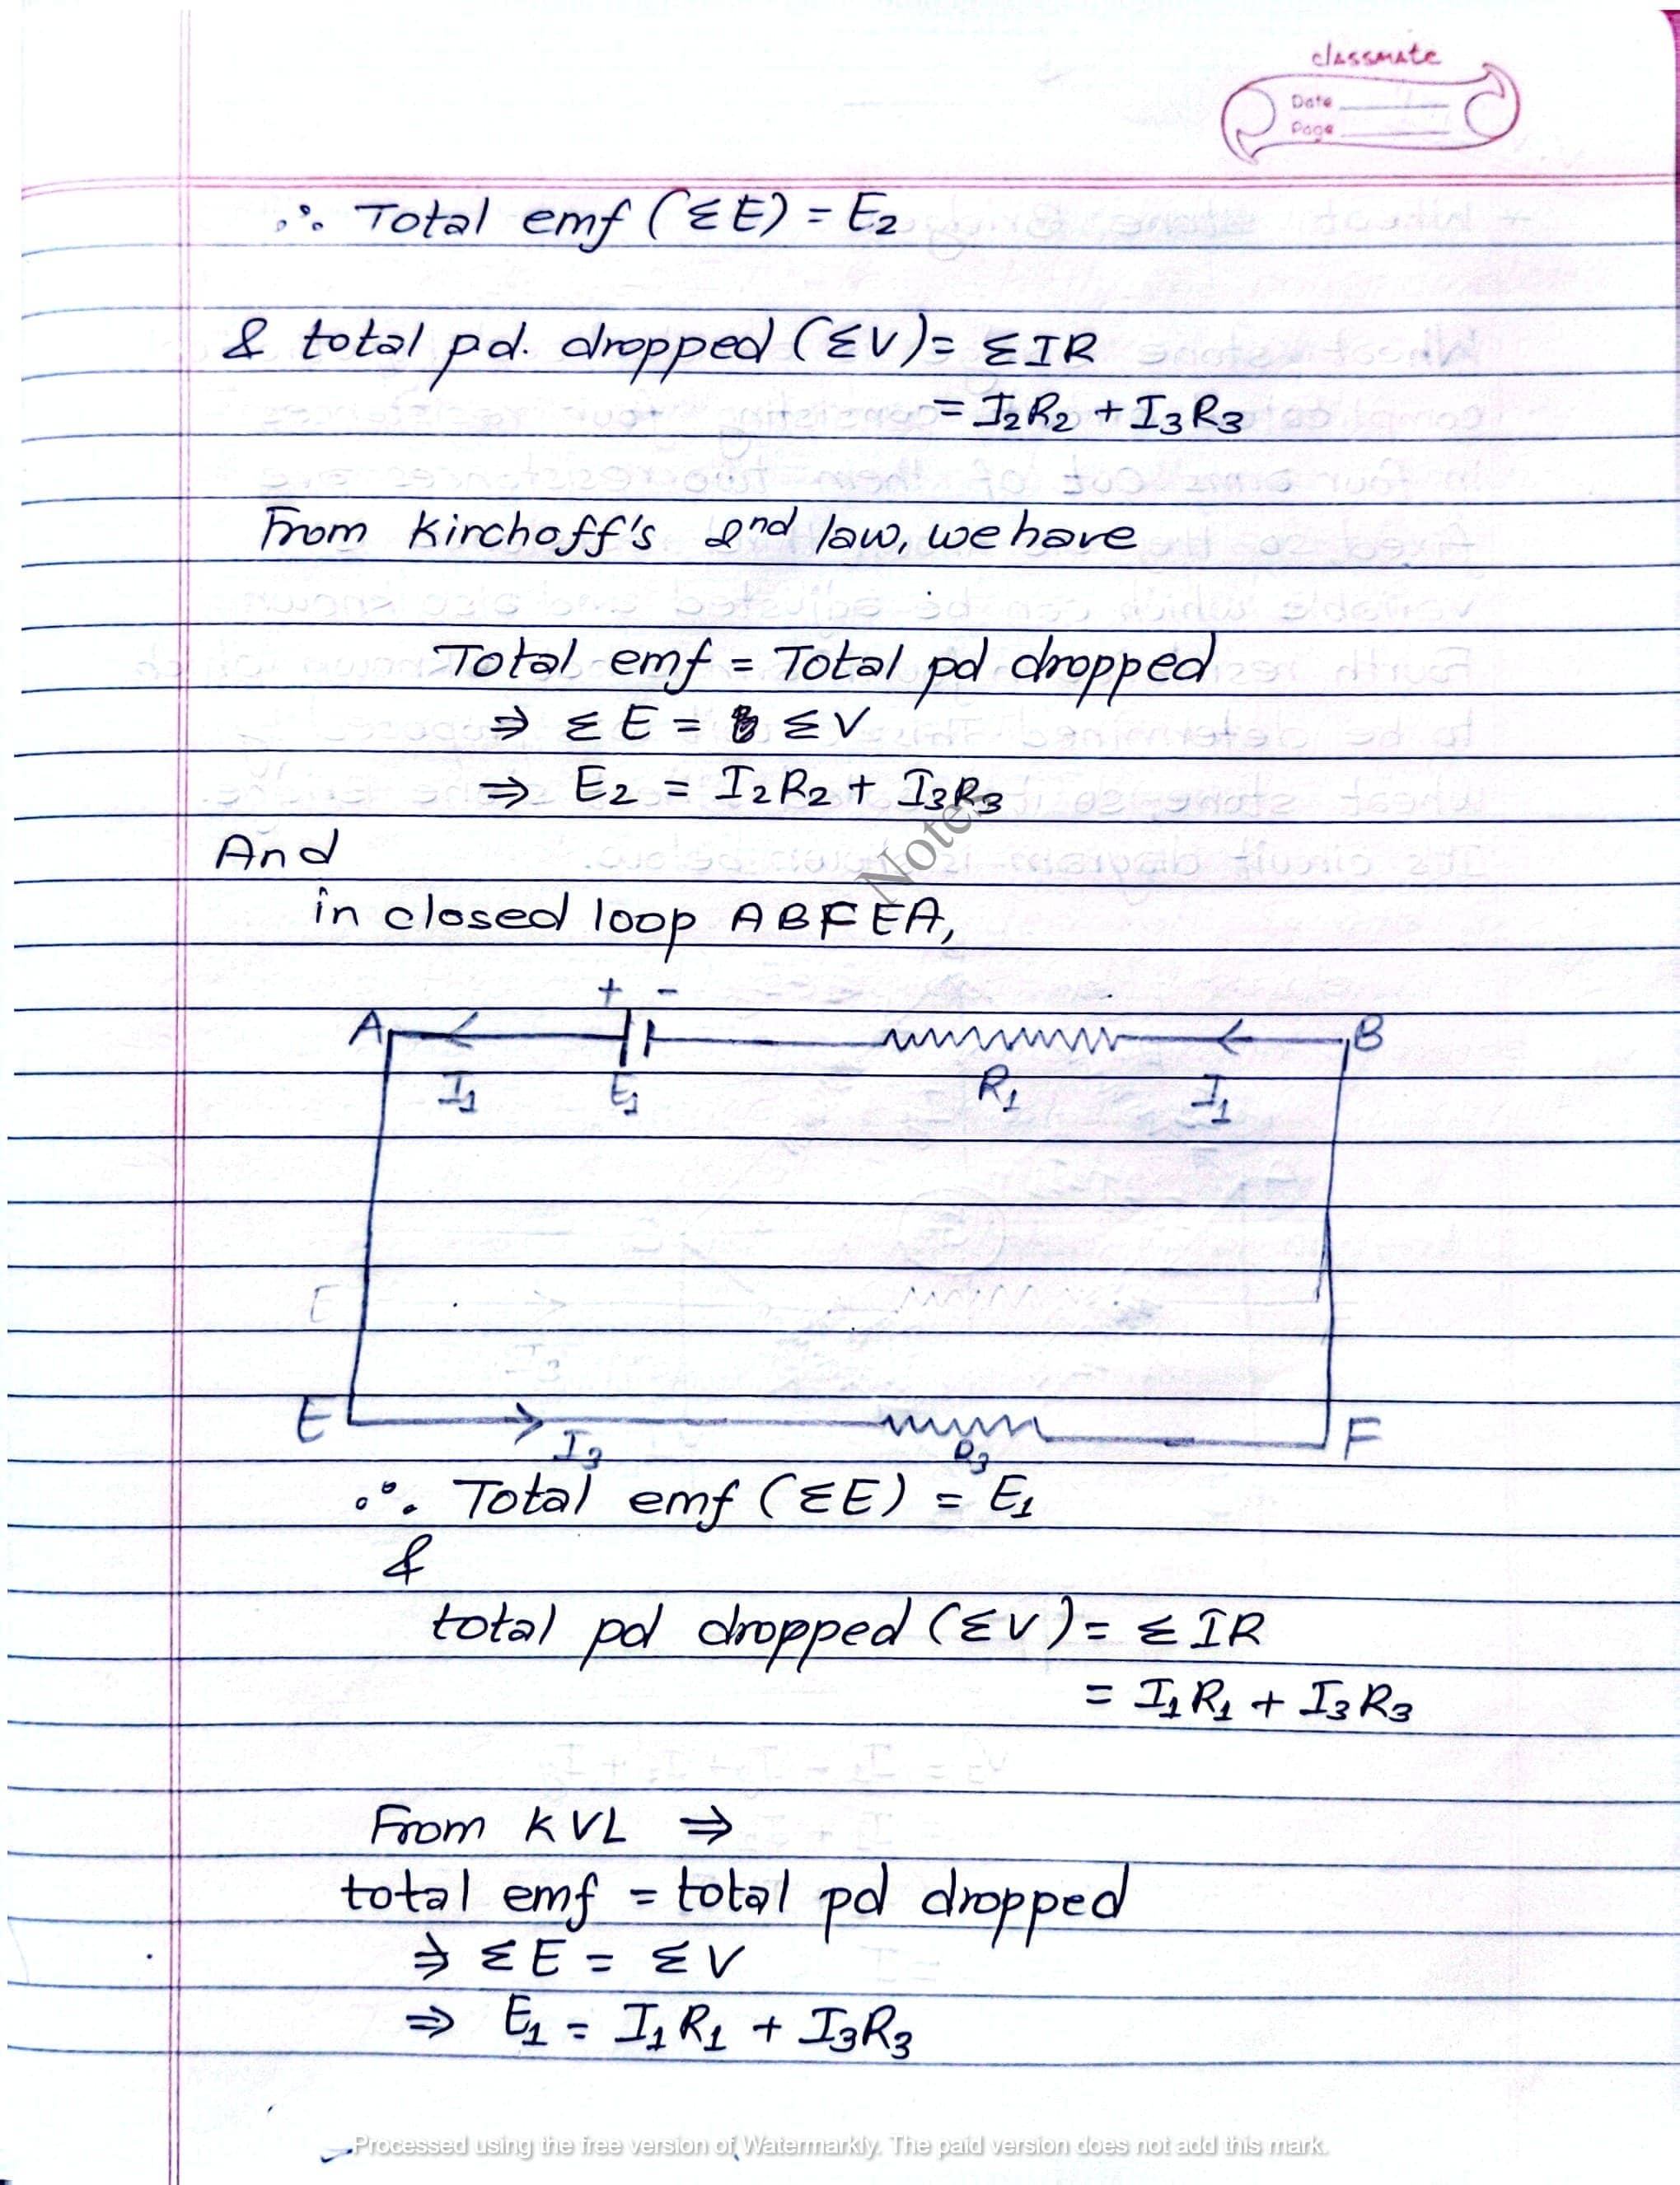 classmate
Date
Page
∴ Total emf (ΣE) = E₂
& total p.d. dropped (ΣV) = ΣIR
= I₂R₂ + I₃R₃
From Kirchoff's 2nd law, we have
Total emf = Total pd dropped
⇒ ΣE = ΣV
⇒ E₂ = I₂R₂ + I₃R₃
Notes
And
in closed loop ABFEA,
+ -
A B
I₁ E₁ R₁ I₁
E F
I₃ R₃
∴ Total emf (ΣE) = E₁
&
total pd dropped (ΣV) = ΣIR
= I₁R₁ + I₃R₃
From KVL ⇒
total emf = total pd dropped
⇒ ΣE = ΣV
⇒ E₁ = I₁R₁ + I₃R₃
Processed using the free version of Watermarkly. The paid version does not add this mark.